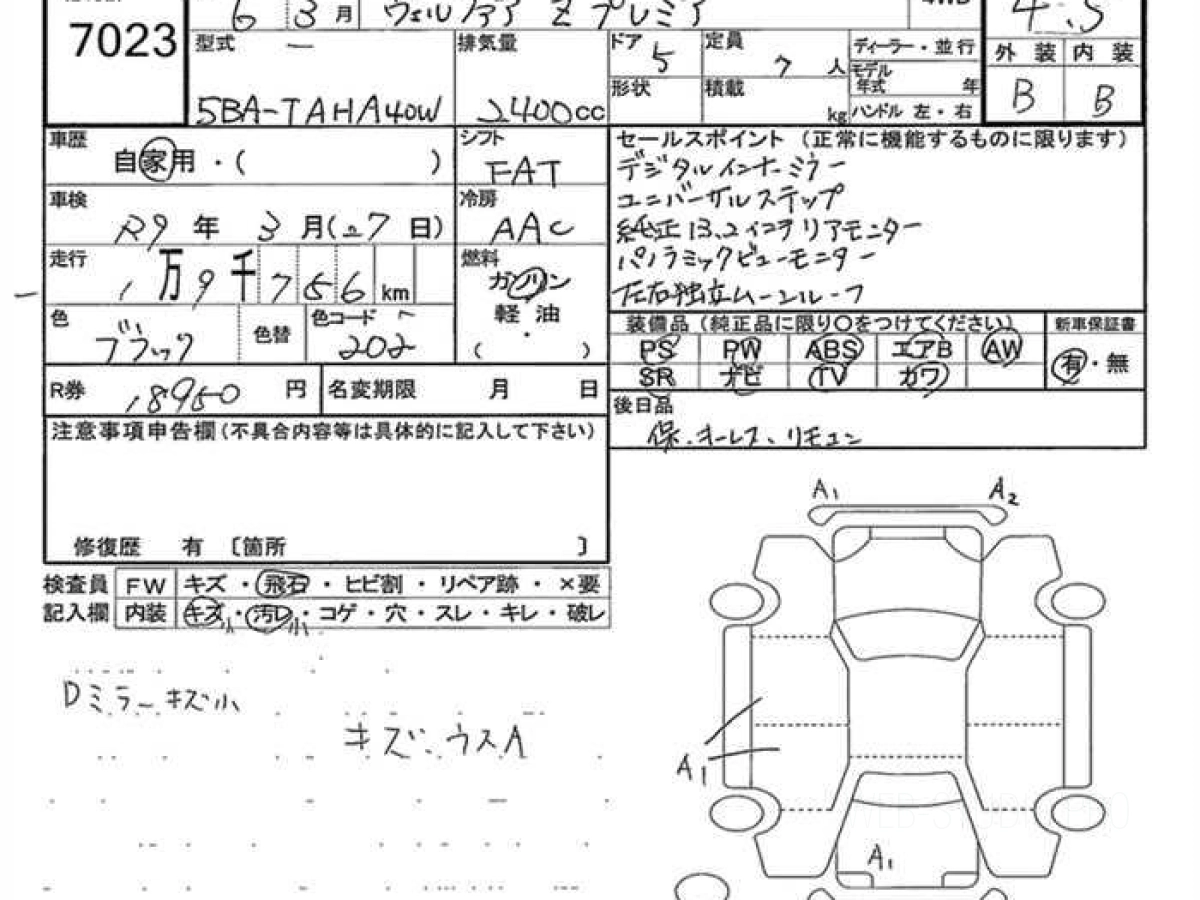 6 3月 ヴェルファイア Z プレミア 4WD 4.5
7023
型式 排気量 ドア 5 定員 7人 ディーラー・並行 外装 内装
モデル年式 年
5BA-TAHA40W 2400cc 形状 積載 kg ハンドル 左・右 B B
車歴 自家用・( ) シフト FAT セールスポイント (正常に機能するものに限ります)
デジタルインナーミラー
車検 R9年 3月(27日) 冷房 AAC ユニバーサルステップ
純正13.2インチリアモニター
走行 1万9千756km 燃料 ガソリン・軽油 ( ) パノラミックビューモニター
左右独立ムーンルーフ
色 ブラック 色替 色コード 202 装備品 (純正品に限り○をつけてください) 新車保証書
PS PW ABS エアB AW 有・無
R券 18950円 名変期限 月 日 SR ナビ TV カワ
後日品
注意事項申告欄(不具合内容等は具体的に記入して下さい) 保.キーレス、リモコン
修復歴 有 〔箇所 〕
検査員 FW キズ・飛石・ヒビ割・リペア跡・×要
記入欄 内装 キズ・汚レ・コゲ・穴・スレ・キレ・破レ
小 小
Dミラーキズ小
キズ、ウスA
A1 A2
A1
A1